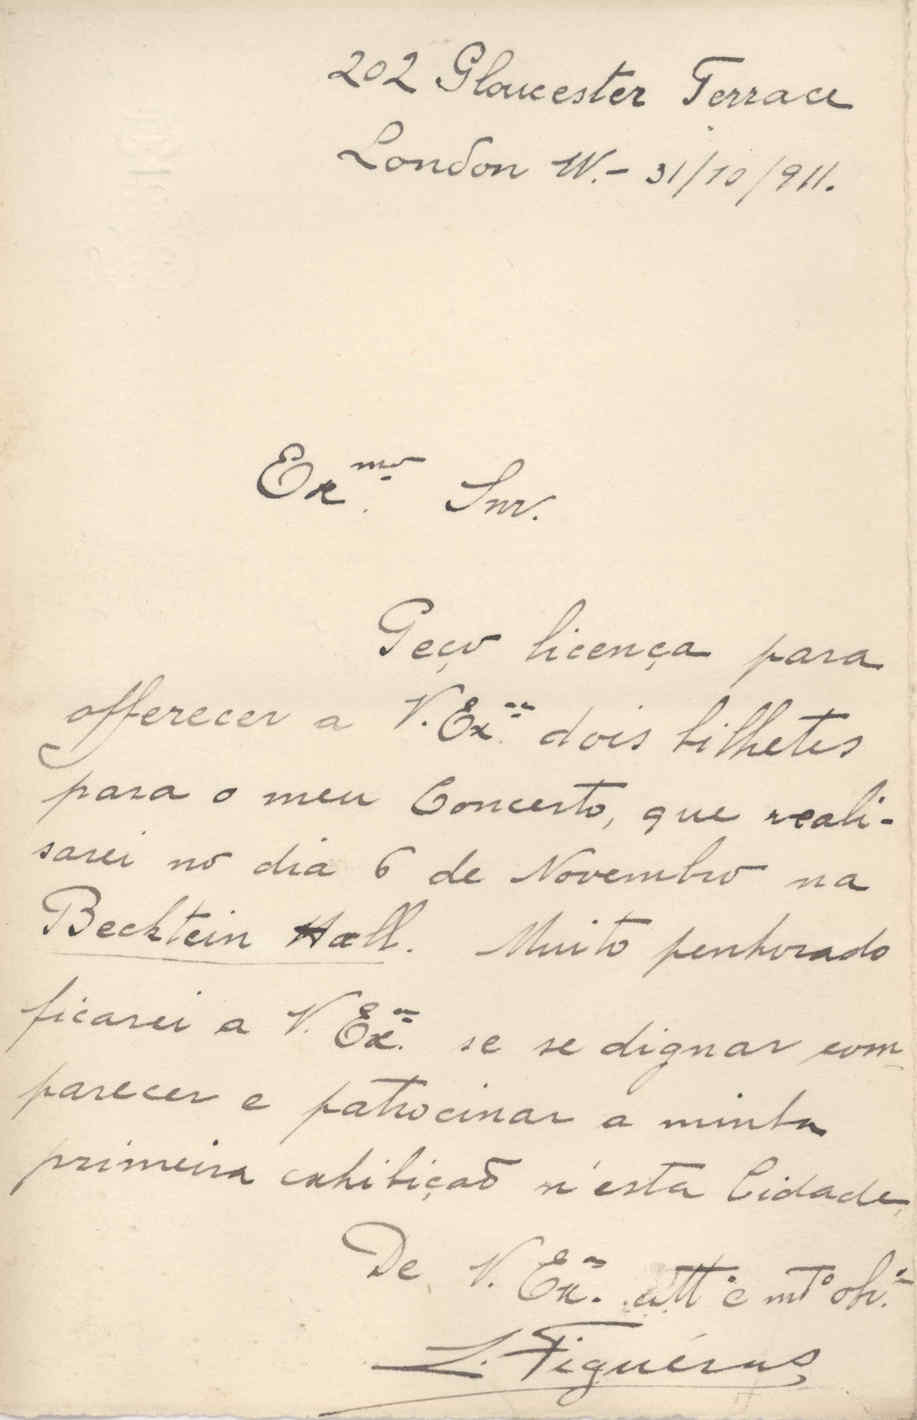 202 Gloucester Terrace
London W. - 31/10/911.
Exmo. Snr.
Peço licença para
offerecer a V. Exa. dois bilhetes
para o meu Concerto, que reali-
sarei no dia 6 de Novembro na
Becktein Hall. Muito penhorado
ficarei a V. Exa. se se dignar com-
parecer e patrocinar a minha
primeira exhibição n'esta Cidade.
De V. Exa. atto e mto obro.
L. Figuéras